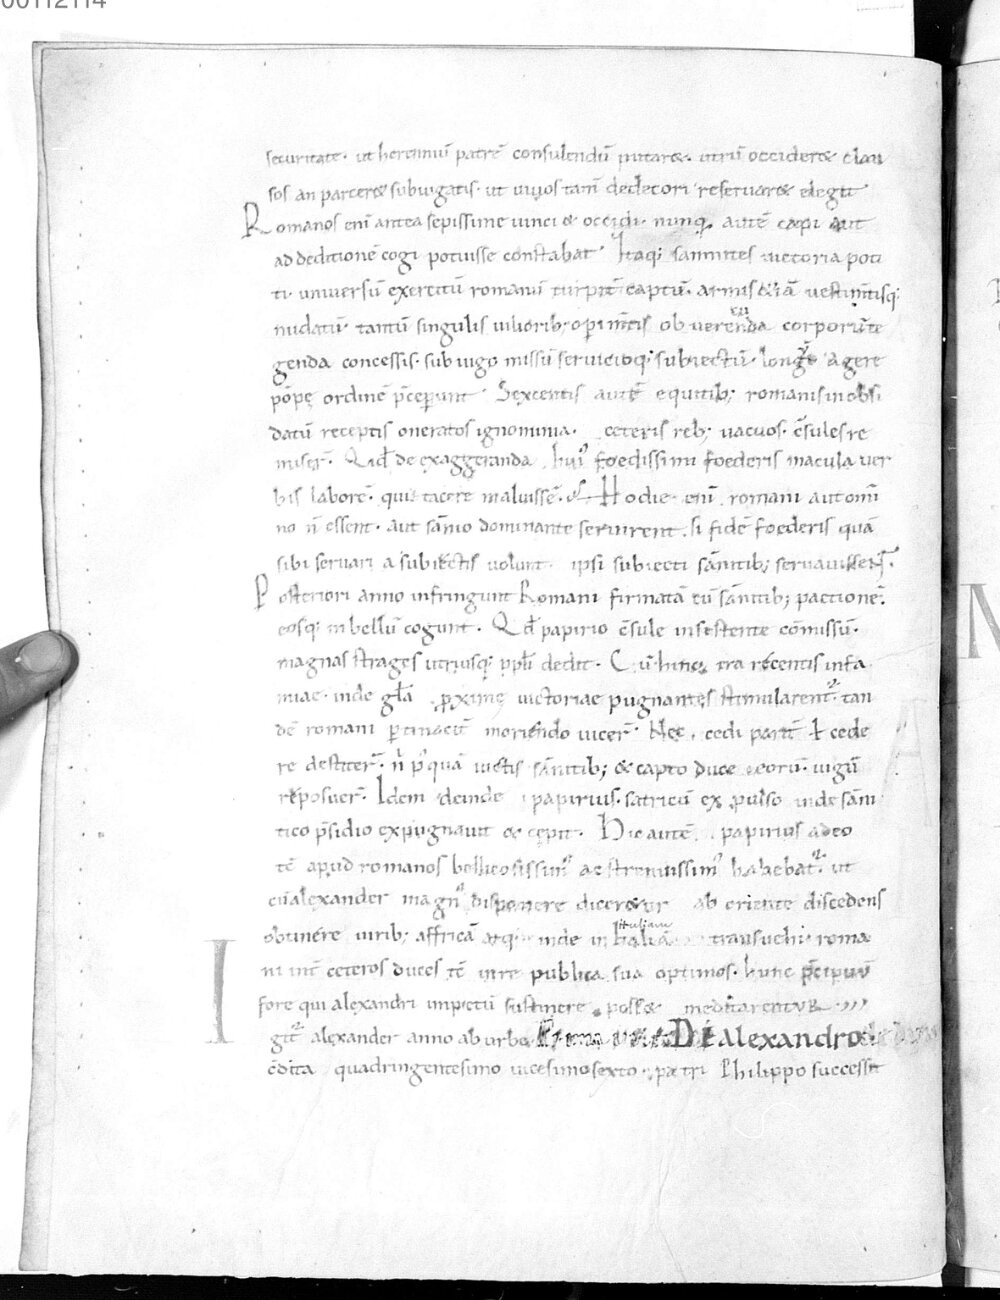 00112114
securitate. ut herenniū patrē consulendū putar&. utrū occider& clau
sos an parcer& subiugatis. ut uiuos tam̄ dedecori reseruar& elegit
Romanos eni antea sepissime uinci & occidi. nunq, autē capi aut
ad deditionē cogi potuisse constabat. Itaq; samnites uictoria poti
ti. uniuersū exercitū romanū turpit captū. armis &iā uestimtisq;
nudatū. tantū singulis uiliorib; opimtis ob uerenda corporū te
genda concessis. sub iugo missū seruicioq; subiectū. longe agere
pōpę ordinē p̄ceperunt. Sexcentis autē equitib; romanis in obsi
datū receptis oneratos ignominia. ceteris reb; uacuos. c̄sules re
miser̄. Qid de exaggeranda hui' foedissimi foederis macula uer
bis laborē. qui tacere maluissē. Hodie enī romani aut omi
no n̄ essent. aut samnio dominante seruirent. si fidē foederis quā
sibi seruari a subiectis uolunt. ipsi subiecti sānitib; seruauissent.
Posteriori anno infringunt Romani firmatā cū sānitib; pactionē.
eosq; in bellū cogunt. Qd papirio c̄sule insistente cōmissū.
magnas strages utriusq; ppli dedit. Cū hinc ira recentis infa
miae. inde gła proximę uictoriae pugnantes stimularent. tan
dē romani ptinacit moriendo uicer̄. Nec cedi parit ł cede
re destiter̄. n̄ p'quā uictis sānitib; & capto duce eorū. iugū
reposuer̄. Idem deinde papirius. satricū expulso inde sāni
tico p̄sidio expugnauit & cępit. Hic autē papirius adeo
tē apud romanos bellicosissim' ac strenuissim' habebat. ut
cū alexander magn' disponere dicer&ur ab oriente discedens
obtinere uirib; affricā atq; inde in italiā transuehi. roma
ni int ceteros duces tē in re publica sua optimos. hunc p̄cipuū
fore qui alexandri impetū sustinere poss& meditarentur
git alexander anno ab urbe DE alexandro
c̄dita quadringentesimo uicesimo sexto. patri Philippo successit
I